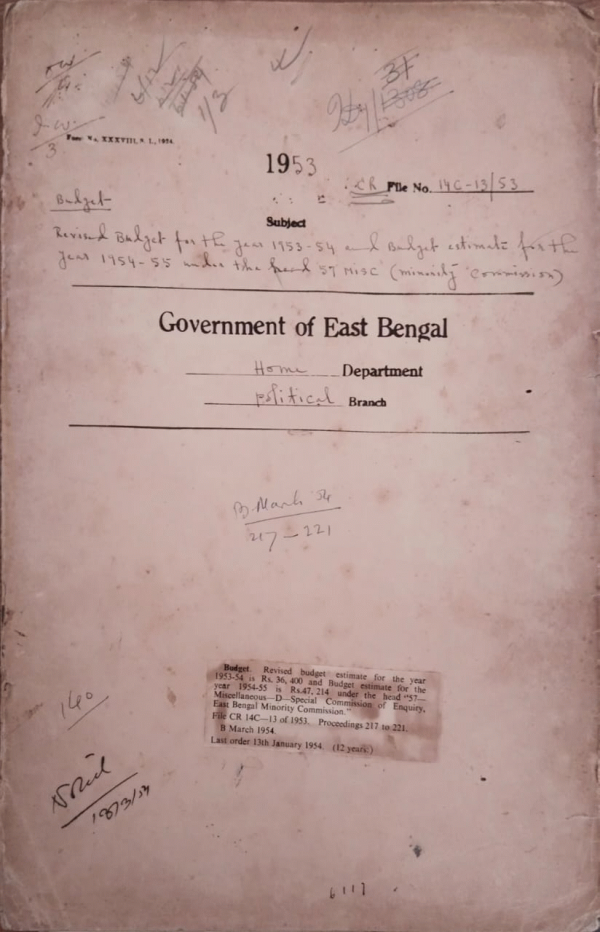 3F
Form No. XXXVIII, S. I., 1924.
3
1953
CR File No. 14C-13/53
Budget
Subject
Revised Budget for the year 1953-54 and Budget estimate for the
year 1954-55 under the head 57 MISC (minority commission)
Government of East Bengal
Home Department
Political Branch
B. March 54
217-221
Budget. Revised budget estimate for the year
1953-54 is Rs. 36,400 and Budget estimate for the
year 1954-55 is Rs.47,214 under the head "57—
Miscellaneous—D—Special Commission of Enquiry,
East Bengal Minority Commission."
File CR 14C—13 of 1953. Proceedings 217 to 221.
B March 1954.
Last order 13th January 1954. (12 years.)
140
6117